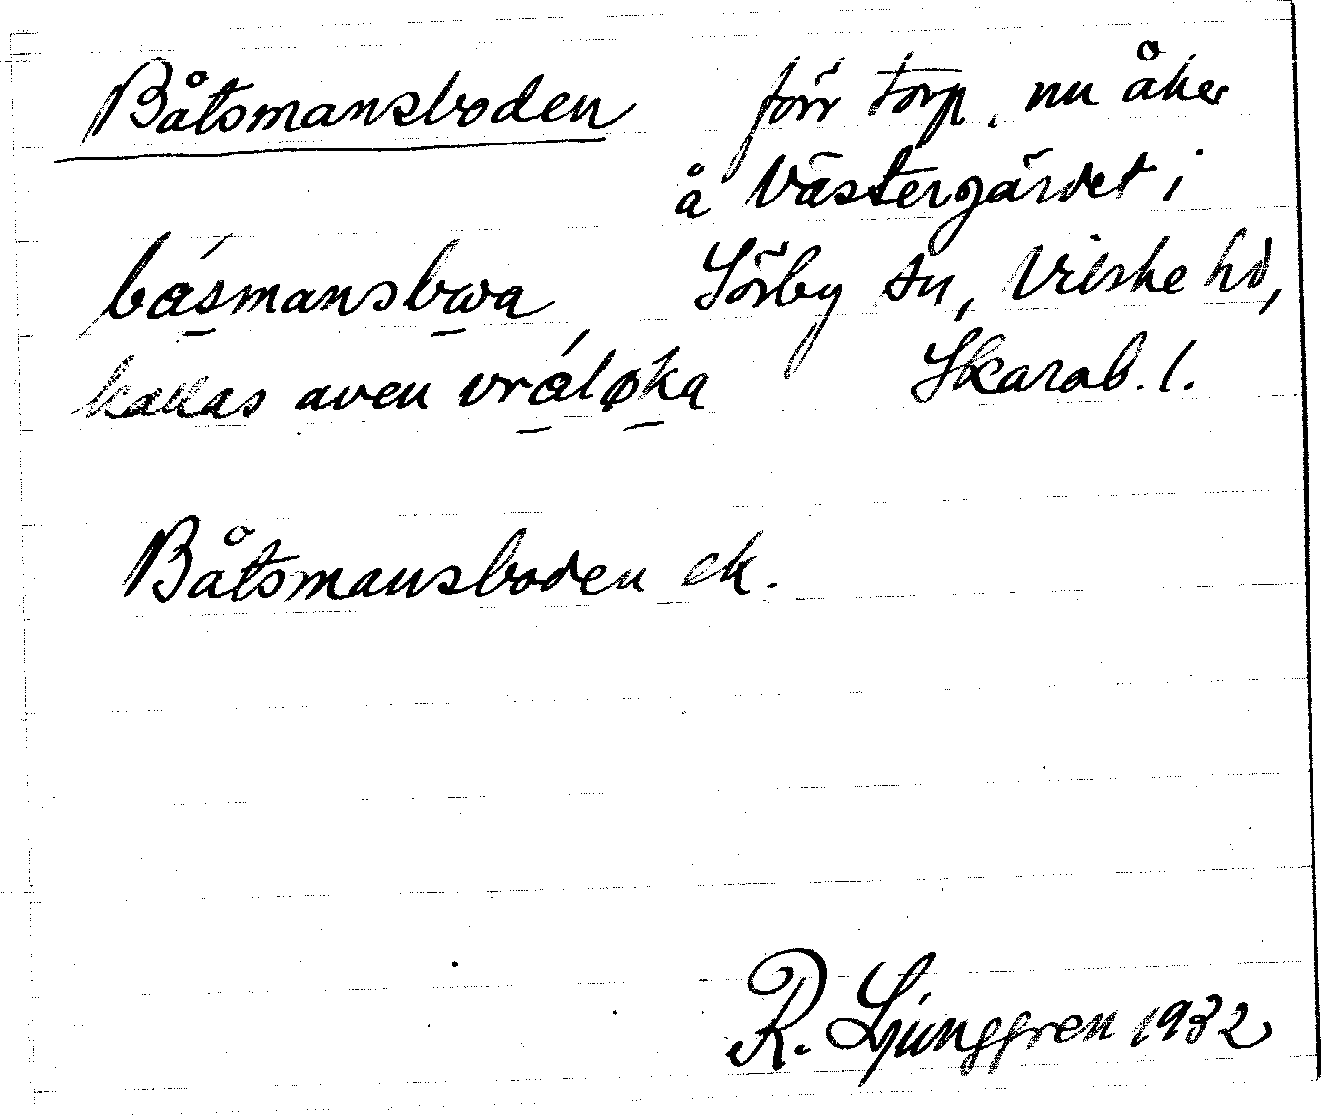 Båtsmansboden
förr torp, nu åker
å Västergärdet i
Sörby sn, Vilske hd,
Skarab. l.
básmansbωa
kallas även vráløka
Båtsmansboden ek.
R. Ljunggren 1932